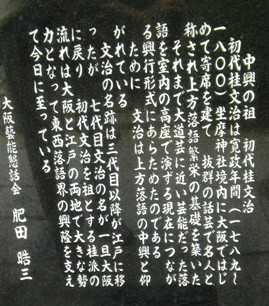 中興の祖　初代桂文治
初代桂文治は寛政年間（一七八九〜
一八〇〇）坐摩神社境内に大阪ではじ
めて寄席を建て　抜群の話芸で名人と
称され上方落語繁栄の基礎を築いた
それまで大道芸に近い芸能だった落
語を室内の高座で演ずる現在につなが
る興行形式にあらためたのである
ために　文治は上方落語の中興と仰
がれている
文治の名跡は三代目以降が江戸に移
ったが　七代目文治の名が一旦大阪
に戻り　初代文治を祖とする桂派の
流れは大阪と江戸の両地で大きな勢
力となって東西落語界の興隆を支え
て今日に至っている
大阪藝能懇話会　肥田晧三